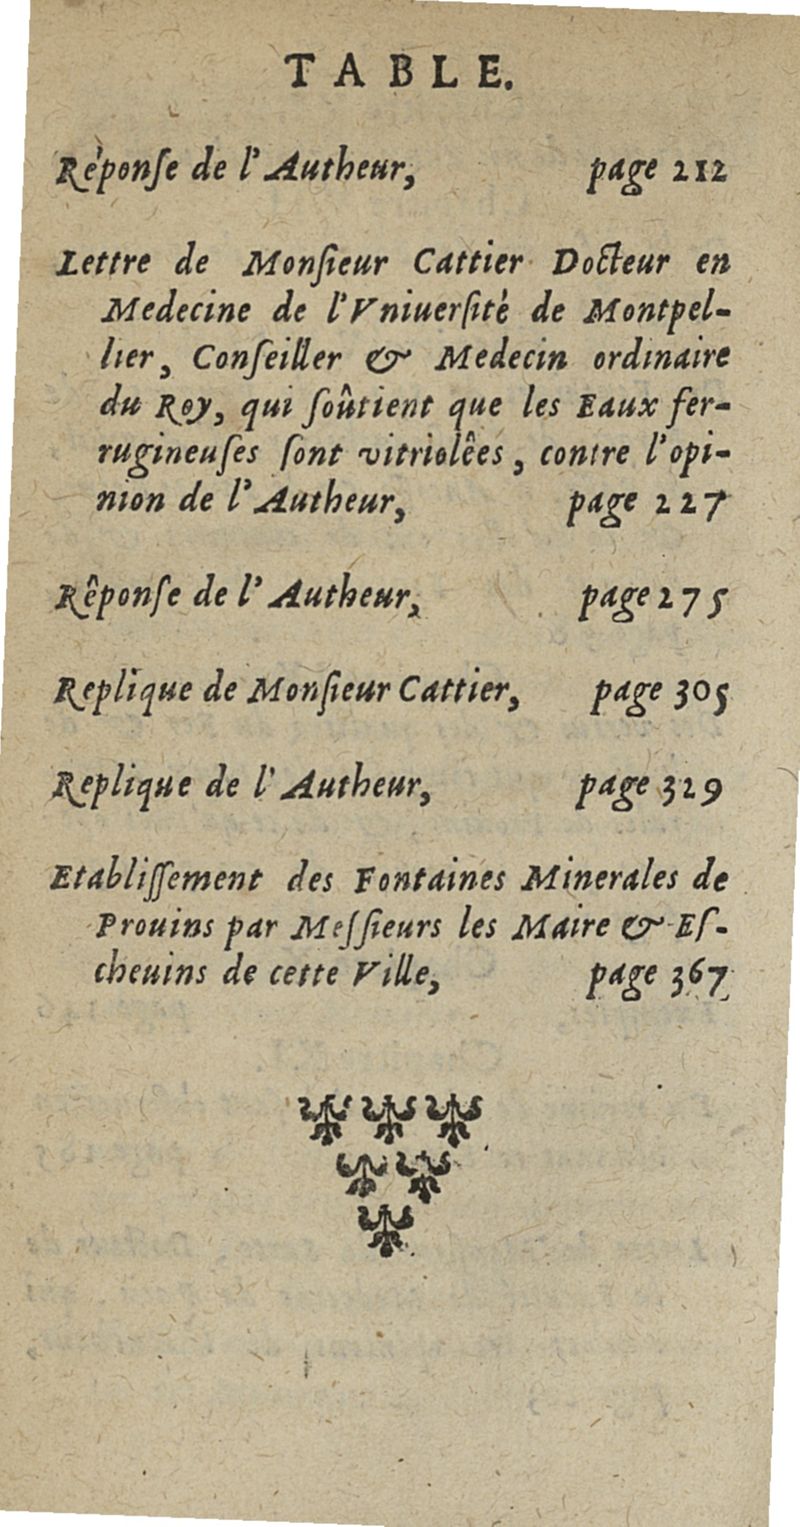 TABLE.
Rêponſe de l'Autheur, page 212
Lettre de Monſieur Cattier Docteur en
Medecine de l'Vniuerſité de Montpel-
lier, Conſeiller & Medecin ordinaire
du Roy, qui ſoûtient que les Eaux fer-
rugineuſes ſont vitriolêes, contre l'opi-
nion de l'Autheur, page 227
Rêponſe de l'Autheur, page 275
Replique de Monſieur Cattier, page 305
Replique de l'Autheur, page 329
Etabliſſement des Fontaines Minerales de
Prouins par Meſſieurs les Maire & Eſ-
cheuins de cette Ville, page 367